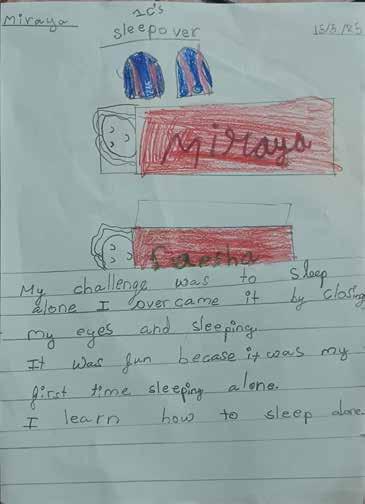 Miraya
1C's
sleepover
15/3/25
Miraya
My challenge was to sleep
alone I overcame it by closing
my eyes and sleeping.
It was fun becase it was my
first time sleeping alone.
I learn how to sleep alone